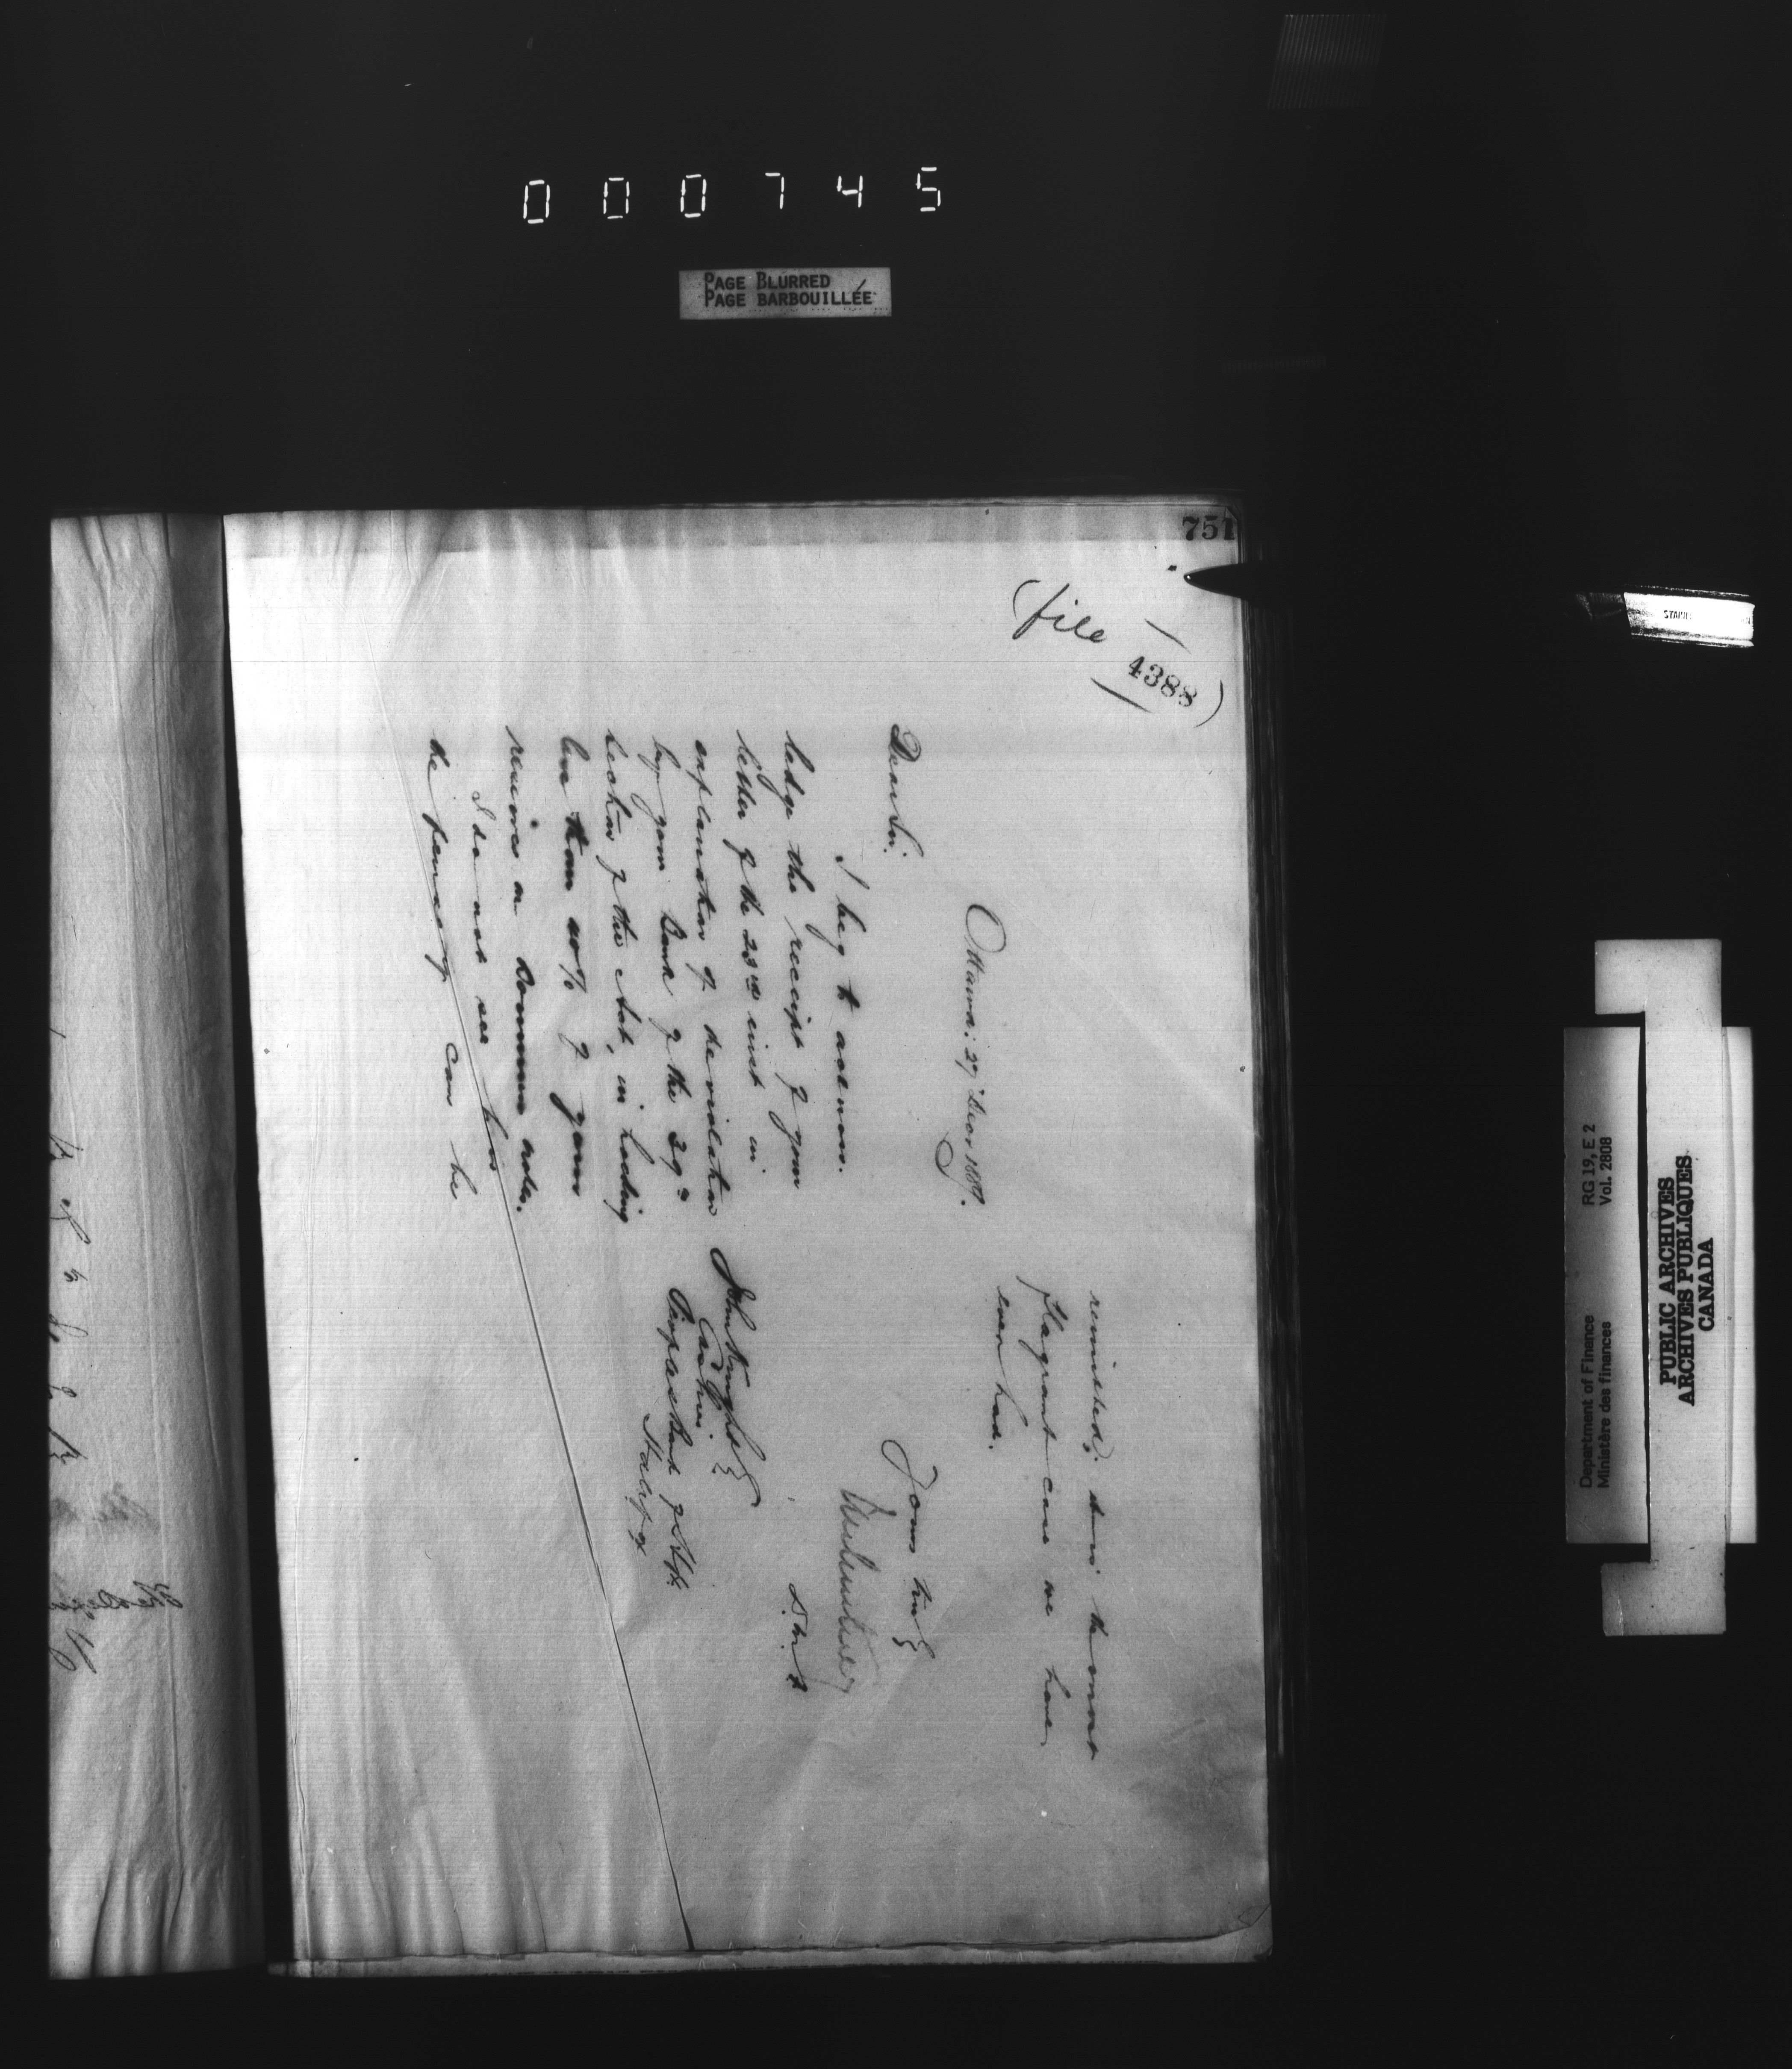 000745
PAGE BLURRED
PAGE BARBOUILLÉE
751
(file 4388)
Ottawa. 27 Decr 1889.
Dear Sir.
I beg to acknow-
ledge the receipt of your
letter of the 23rd inst in
explanation of the violation
by your Bank of the
section of the Act, in holding
less than 40% of your
reserves in Dominion notes.
I do not see how
the penalty can be
remitted; this is the most
flagrant case we have
ever had.
Yours truly
D.M.F
John Knight
Cashier
Peoples Bank of
Halifax
STAPLE
Department of Finance
Ministère des finances
RG 19, E 2
Vol. 2808
PUBLIC ARCHIVES
ARCHIVES PUBLIQUES
CANADA